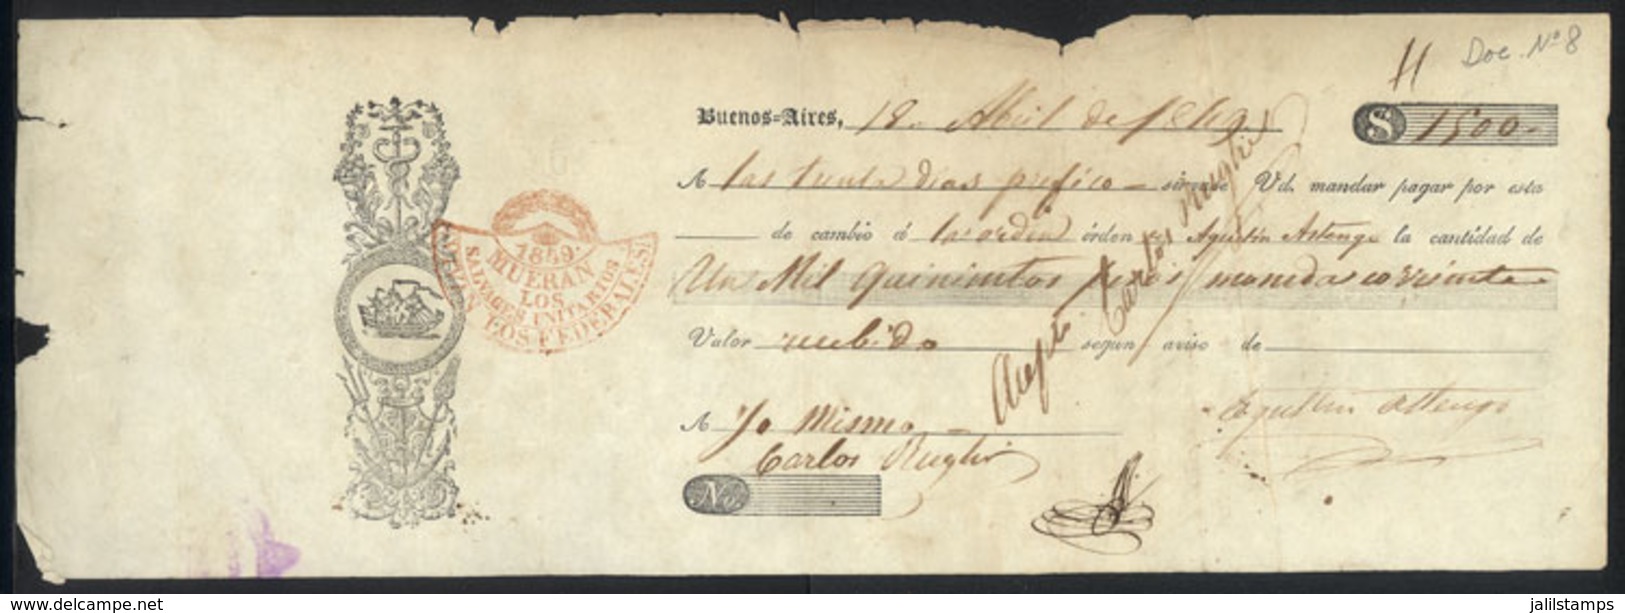 Doc. Nº 8
Buenos=Aires, 18 Abril de 1849 $ 1500
A las treinta dias prefico sirvase Vd. mandar pagar por esta
de cambio ó la orden órden de Agustin Astengo la cantidad de
Un Mil Quinientos pesos moneda corriente
Valor recibido segun aviso de
A Yo Mismo
Carlos
Agustin Astengo
No.
Acepto Carlos
1849.
MUERAN
LOS
SALVAGES UNITARIOS
VIVAN LOS FEDERALES!
delcampe.net
jalilstamps